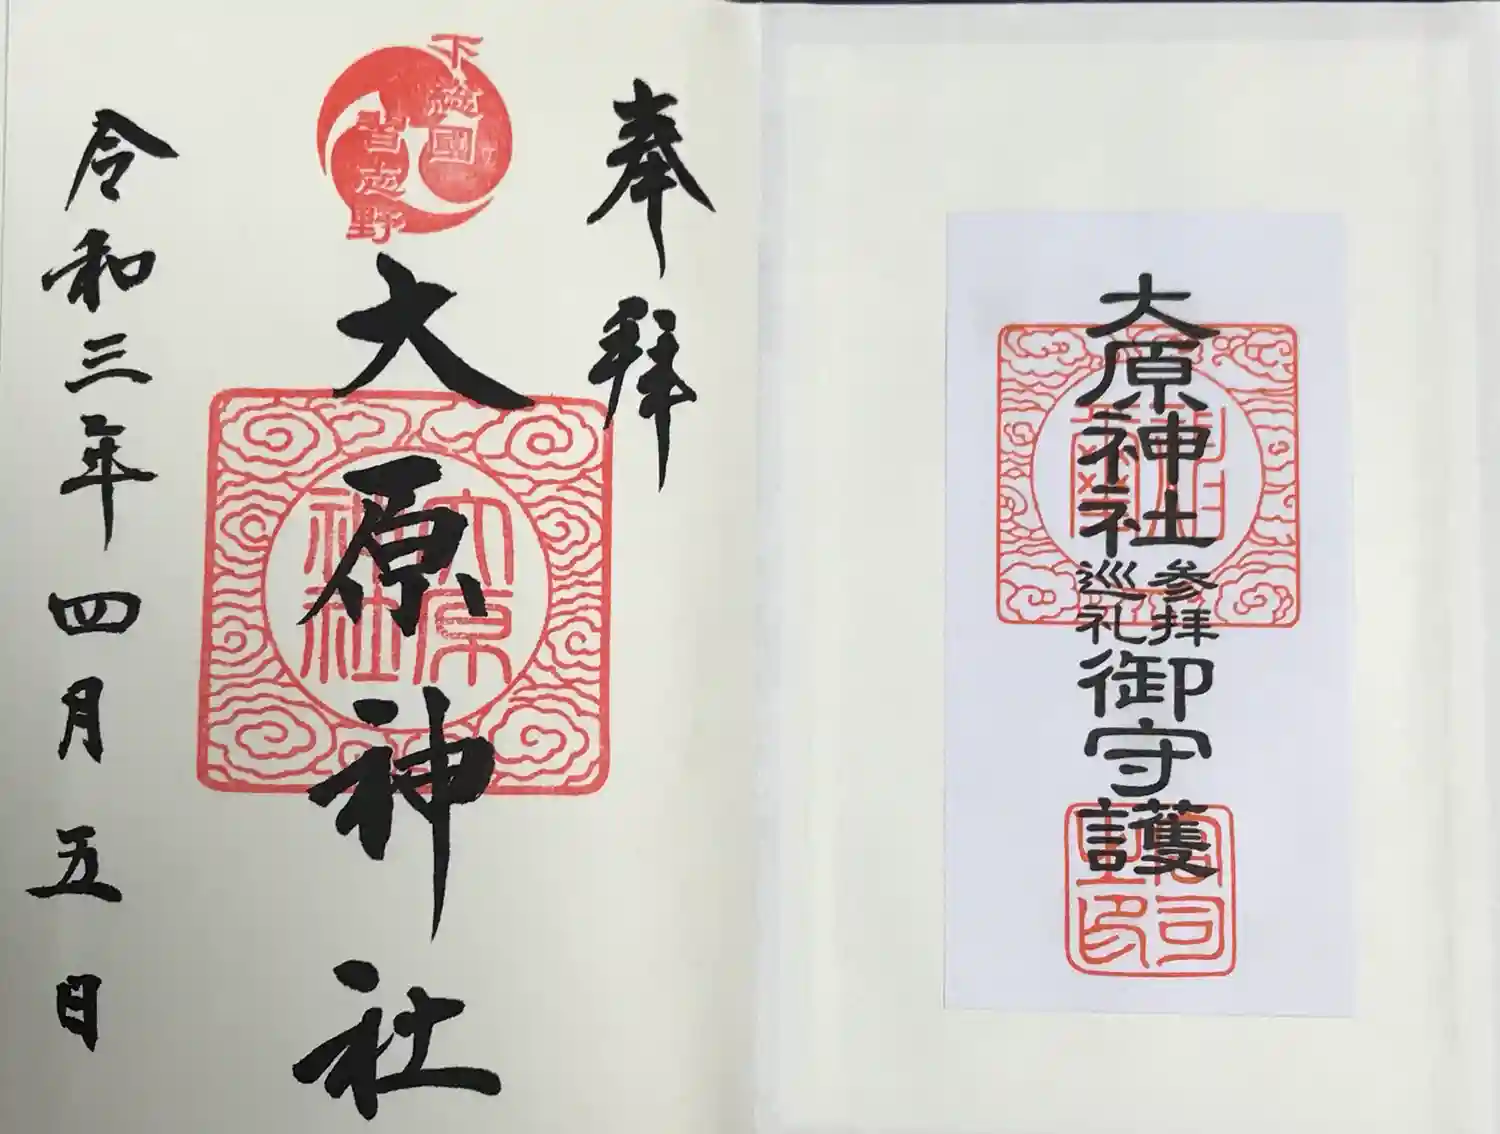 奉拝
下総國
習志野
大原神社
大原
神社
令和三年四月五日
大原神社
参拝
巡礼
御守護
宮司
之印